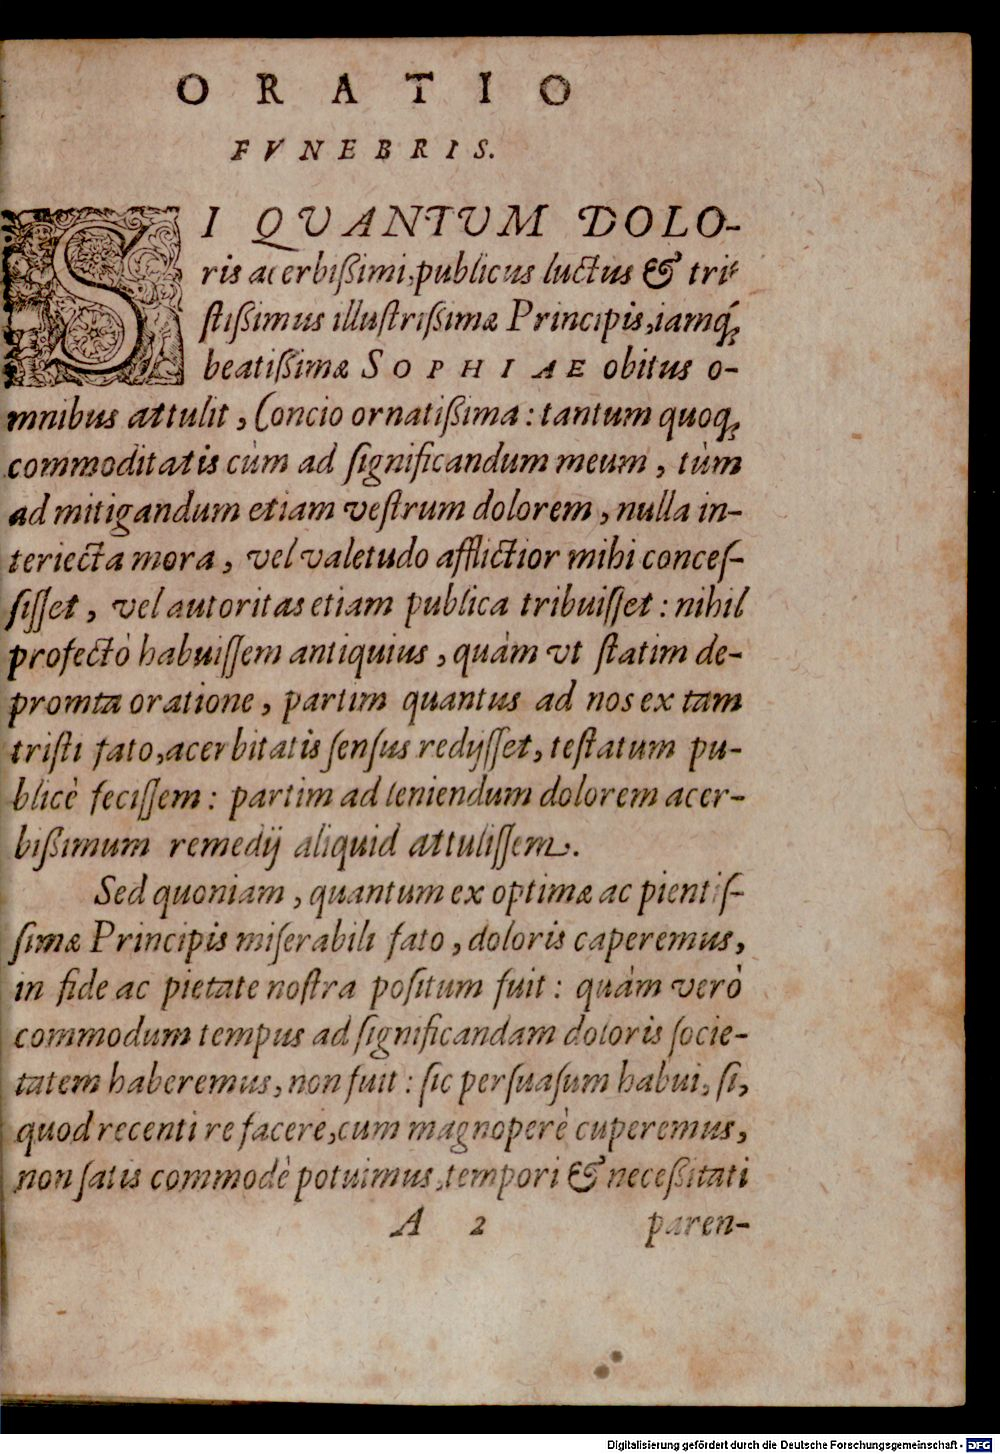 ORATIO
FVNEBRIS.
SI QUANTUM DOLO-
ris acerbißimi, publicus luctus & tri-
ſtißimus illuſtrißimæ Principis, iamq́;
beatißimæ SOPHIAE obitus o-
mnibus attulit, Concio ornatißima: tantum quoq;
commoditatis cùm ad ſignificandum meum, tùm
ad mitigandum etiam veſtrum dolorem, nulla in-
teriecta mora, vel valetudo afflictior mihi conceſ-
ſiſſet, vel autoritas etiam publica tribuiſſet: nihil
profectò habuiſſem antiquius, quàm vt ſtatim de-
promta oratione, partim quantus ad nos ex tam
triſti fato, acerbitatis ſenſus redijſſet, teſtatum pu-
blicè feciſſem: partim ad leniendum dolorem acer-
bißimum remedij aliquid attuliſſem.
Sed quoniam, quantum ex optimæ ac pientiſ-
ſimæ Principis miſerabili fato, doloris caperemus,
in fide ac pietate noſtra poſitum fuit: quàm verò
commodum tempus ad ſignificandam doloris ſocie-
tatem haberemus, non fuit: ſic perſuaſum habui, ſi,
quod recenti re facere, cum magnoperè cuperemus,
non ſatis commodè potuimus, tempori & neceßitati
A 2 paren-
Digitalisierung gefördert durch die Deutsche Forschungsgemeinschaft - DFG